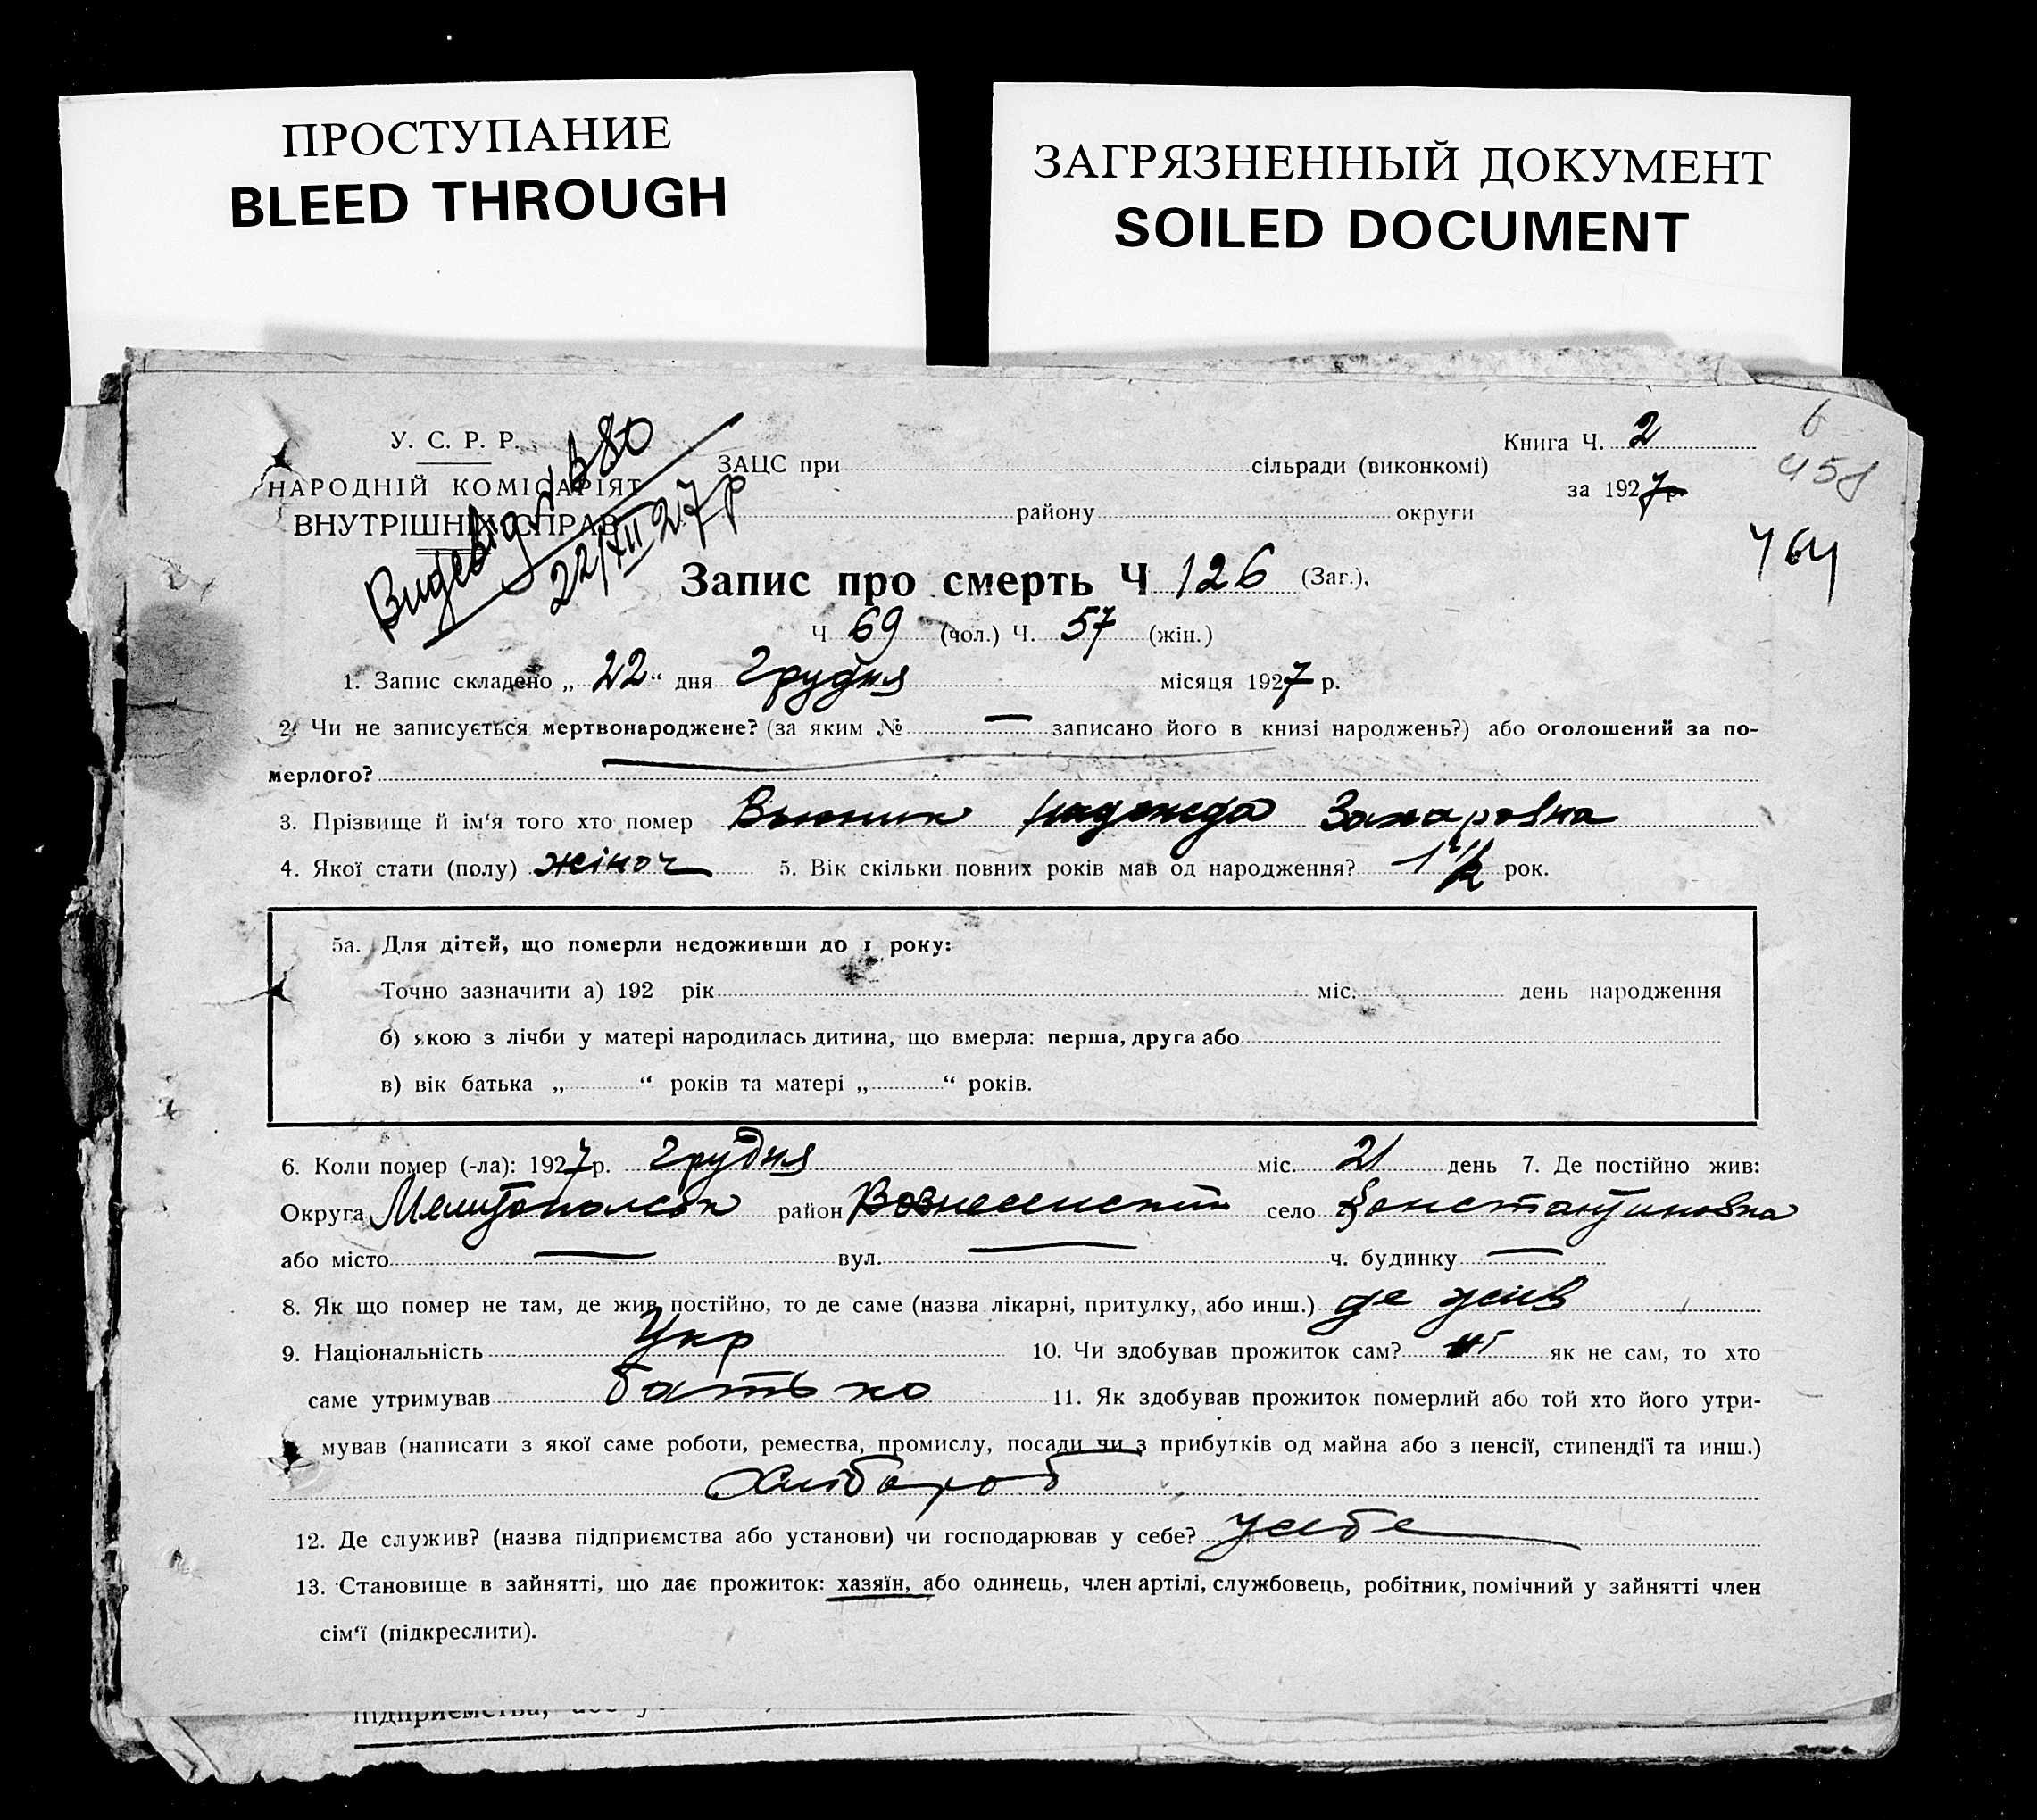 ПРОСТУПАНИЕ
BLEED THROUGH
ЗАГРЯЗНЕННЫЙ ДОКУМЕНТ
SOILED DOCUMENT
У. С. Р. Р.
НАРОДНІЙ КОМІСАРІЯТ
ВНУТРІШНІХ СПРАВ
22/XII 27 р
Книга Ч. 2
за 1927 р.
6
458
ЗАЦС при сільради (виконкомі)
району округи
Запис про смерть Ч 126 (Заг.).
Ч 69 (чол.) Ч. 57 (жін.)
1. Запис складено „ 22 “ дня Грудня місяця 1927 р.
2. Чи не записується мертвонароджене? (за яким № — записано його в книзі народжень?) або оголошений за по-
мерлого?
3. Прізвище й ім‘я того хто помер Надежда Захаровна
4. Якої стати (полу) жіноч 5. Вік скільки повних років мав од народження? 1 1/2 рок.
5а. Для дітей, що померли недоживши до 1 року:
Точно зазначити а) 192 рік міс. день народження
б) якою з лічби у матері народилась дитина, що вмерла: перша, друга або
в) вік батька „ “ років та матері „ “ років.
6. Коли помер (-ла): 1927 р. Грудня міс. 21 день 7. Де постійно жив:
Округа Мелитопольск район Вознесенский село Константиновка
або місто — вул. — ч. будинку —
8. Як що помер не там, де жив постійно, то де саме (назва лікарні, притулку, або инш.) де жив
9. Національність Укр 10. Чи здобував прожиток сам? ні як не сам, то хто
саме утримував батько 11. Як здобував прожиток померлий або той хто його утри-
мував (написати з якої саме роботи, ремества, промислу, посади чи з прибутків од майна або з пенсії, стипендії та инш.)
Хлібороб
12. Де служив? (назва підприємства або установи) чи господарював у себе? у себе
13. Становище в зайнятті, що дає прожиток: хазяїн, або одинець, член артілі, службовець, робітник, помічний у зайнятті член
сім‘ї (підкреслити).